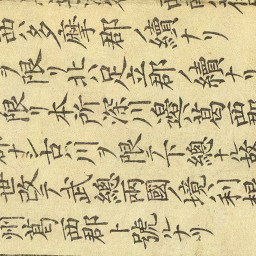 西多摩郡ノ續ナリ
ヲ限リ北ハ足立郡ノ續ナリ
限リ本所深川邊葛西郡
古川ヲ限テ下總ト故
世改テ武總兩國ノ境利根
州葛西郡ト號スナリ